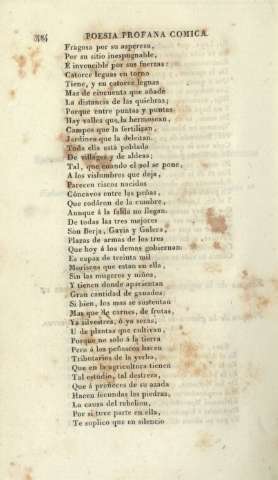 384 POESIA PROFANA COMICA.
Fragosa por su aspereza,
Por su sitio inespugnable,
E invencible por sus fuertas:
Catorce leguas en torno
Tiene, y en catorce leguas
Mas de cincuenta que añade
La distancia de las quiebras;
Porque entre puntas y puntas
Hay valles que la hermosean,
Campos que la fertilizan,
Jardines que la deleitan.
Toda ella está poblada
De villages y de aldeas;
Tal, que cuando el sol se pone,
A los vislumbres que deja,
Parecen riscos nacidos
Cóncavos entre las peñas,
Que rodáron de la cumbre,
Aunque á la falda no llegan.
De todas las tres mejores
Son Berja, Gavia y Galera,
Plazas de armas de los tres
Que hoy á los demas gobiernan.
Es capaz de treinta mil
Moriscos que estan en ella,
Sin las mugeres y niños,
Y tienen donde apacientan
Gran cantidad de ganados;
Si bien, los mas se sustentan
Mas que de carnes, de frutas,
Ya silvestres, ó ya secas,
U de plantas que cultivan,
Porque no solo á la tierra
Pero á los peñascos hacen
Tributarios de la yerba,
Que en la agricultora tienen
Tal estudio, tal destreza,
Que á preñeces de su azada
Hacen fecundas las piedras,
La causa del rebelion,
Por si tuve parte en ella,
Te suplico que en silencio